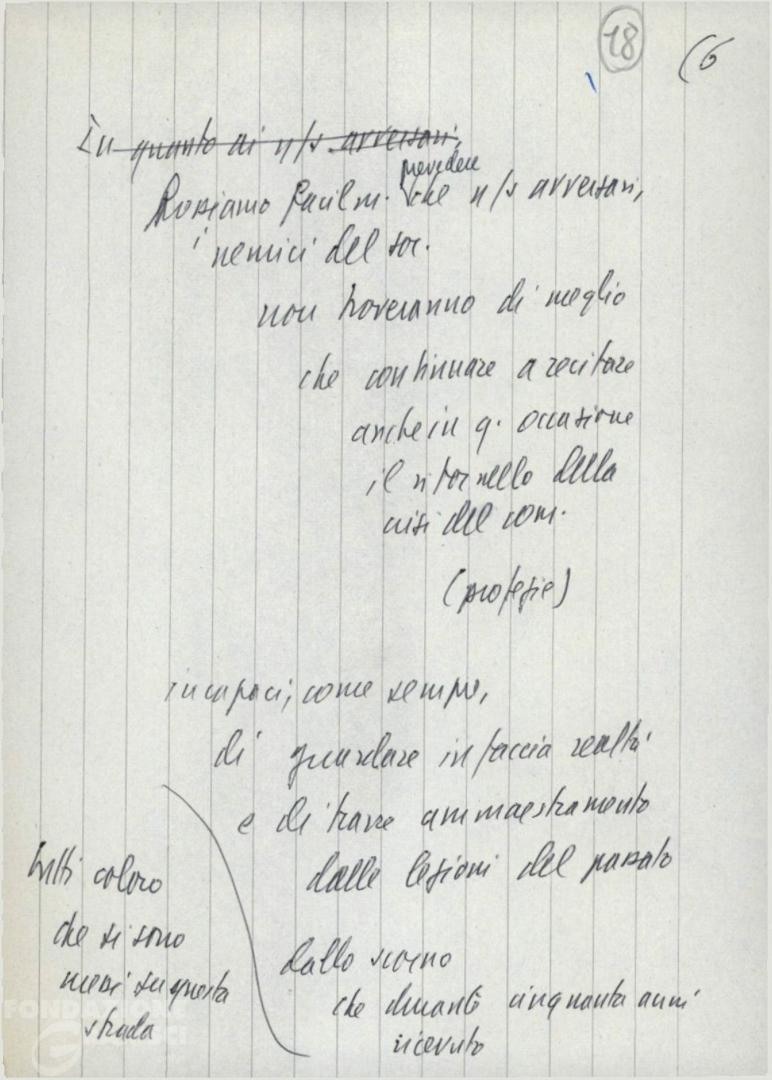 18
(6
In quanto ai n/s avversari,
prevedere
Possiamo facilm. che n/s avversari,
i nemici del soc.
non troveranno di meglio
che continuare a recitare
anche in q. occasione
il ritornello della
crisi del com.
(profezie)
incapaci, come sempre,
di guardare in faccia realtà
e di trarre ammaestramento
dalle lezioni del passato
tutti coloro
che si sono
messi su questa
strada
dallo scorno
che durante cinquanta anni
ricevuto
FONDAZIONE
GRAMSCI